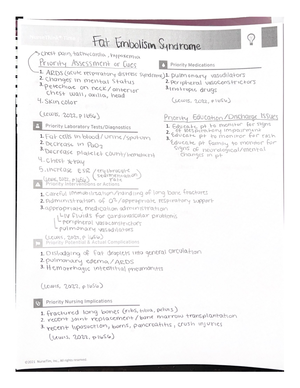 Fat Embolism Syndrome
chest pain, tachycardia, hypotension
Priority Assessment or Cues
1. ARDS (acute respiratory distress syndrome)
2. Changes in mental status
3. petechiae on neck, anterior
chest wall, axilla, head
4. Skin color
(Lewis, 2022, p 1656)
Priority Medications
1. pulmonary vasodilators
2. Peripheral vasoconstrictors
3. inotropic drugs
(Lewis, 2022, p 1656)
Priority Laboratory Tests/Diagnostics
1. Fat cells in blood/urine/sputum
2. Decrease in PaO2
3. Decrease platelet count/hematocrit
4. Chest xray
5. increase ESR (erythrocyte sedimentation rate)
(Lewis, 2022, p 1656)
Priority Education/Discharge Issues
1. Educate pt to monitor for signs
of respiratory impairment
Educate pt to monitor for rash
Educate pt family to monitor for
signs of neurological/mental
changes in pt
Priority Interventions or Actions
1. Careful immobilization/handling of long bone fractures
2. Administration of O2/appropriate respiratory support
3. appropriate medication administration
IV fluids for cardiovascular problems
peripheral vasoconstrictors
pulmonary vasodilators
(Lewis, 2022, p 1656)
Priority Potential & Actual Complications
1. Dislodging of fat droplets into general circulation
2. pulmonary edema/ARDS
3. Hemorrhagic interstitial pneumonitis
(Lewis, 2022, p 1656)
Priority Nursing Implications
1. Fractured long bones (ribs, tibia, pelvis)
2. recent joint replacement/bone marrow transplantation
3. recent liposuction, burns, pancreatitis, crush injuries
(Lewis, 2022, p 1656)